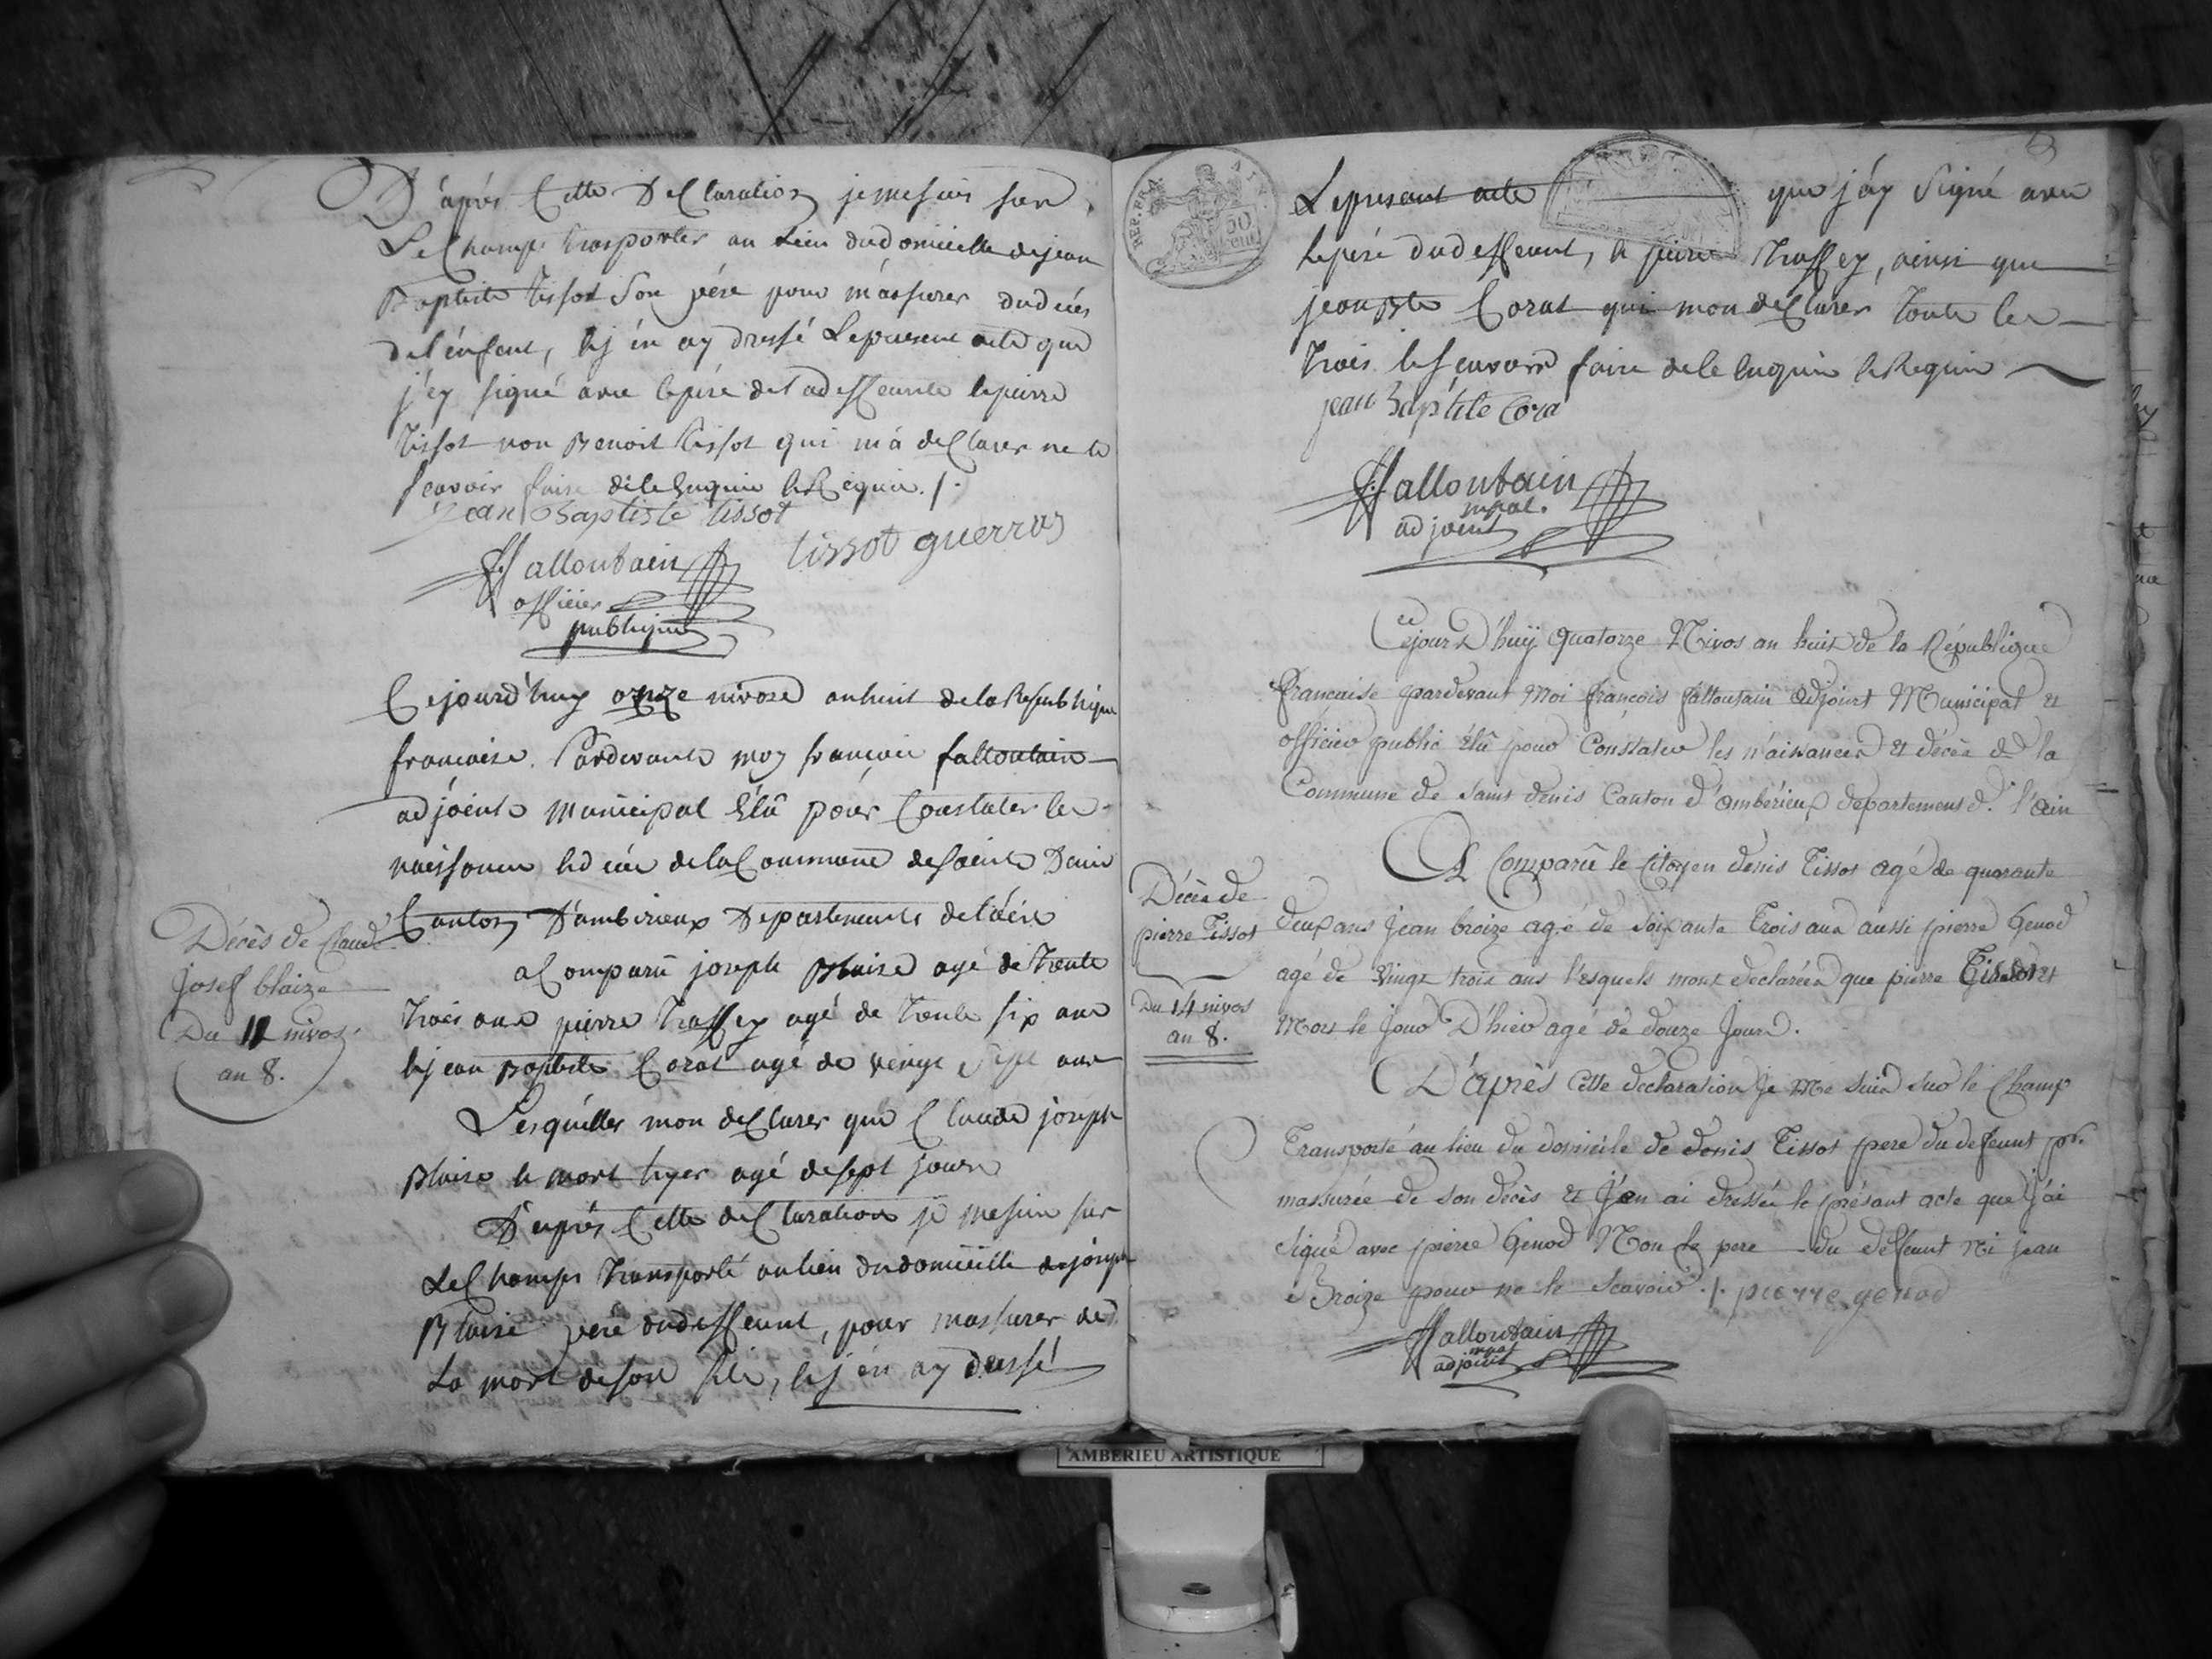 D'après Cette Declaration je me suis sur
Le Champs transporter au Lieu du domicille de jean
Baptiste tissot Son père pour m'assurer du décés
de l'énfent, & j'én ay dressé Le present acte que
j'ey signé avec le pére de la deffeunte & pierre
Tissot non Benoit tissot qui m'a declarer ne le
scavoir faire de le Enquis & Requis ./.
jean Baptiste tissot
tissot guerras
ffalloutain
officier
publique
Cejourd'huy onze nivose an huit de la Republique
francaise. Pardevants moy françois falloutain
adjoint municipal Élû pour Constater les
naissances & décés de la Commune de saint Denis
Canton D'ambérieux Departements de l'ain
a Comparû joseph Blaise agé de trente
trois ans pierre traffey agé de trente six ans
& jean Baptiste Corat agé de vengt sept ans
Lesquelles mon declarer que Claude joseph
Blaise & mort hyer agé de sept jours
D'après Cette declaration je me suis sur
Le Champs transporté au lieu du domicille de joseph
Blaise père du deffeunt, pour m'assurer de
La mort de son fils, & j'én ay dressé
Décès de Claude
Josef blaize
Du 11 nivos
an 8.
REP. FRA.
AIN
50
cent
Le present acte que j'ay Signé avec
le pére du deffeunt, & pierre traffey, ainsi que
jean Bte Corat qui mon declarer toute les
trois le scavoir faire de le enquis & Requis
jean baptite Cora
ffalloutain
mpal.
adjoint
Ce
jourd'huÿ quatorze Nivos an huit de la République
francaise pardevant Moi françois falloutain adjoint Municipal et
officier public élû pour Constater les n'aissances et décès de la
Commune de Saint denis Canton d'ambérieux departement de l'ain
A Comparû le Citoyen denis Tissot agé de quarante
deux ans Jean broize agé de soixante trois ans aussi pierre Genod
agé de vingt trois ans l'esquels mont declarées que pierre Tissot est
Mort le Jour D'hier agé de douze Jours.
D'après Cette declaration Je Me suis sur le Champ
Transporté au lieu du domicile de denis Tissot pere du defeunt pr.
massurée de son décès et J'en ai dressée le présant acte que J'ai
signé avec pierre Genod Non le pere du deffeunt Ni jean
Broize pour ne le Scavoir ./. pierre genod
ffalloutain
mpal
adjoint
Décès de
pierre Tissot
Du 14 nivos
an 8.
AMBERIEU ARTISTIQUE